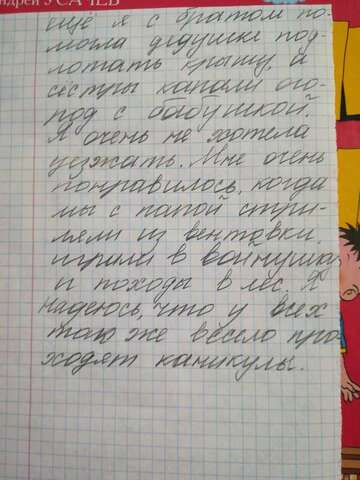 ндрей УСАЧЕВ
ещё я с братом по-
могла дедушке под-
лотать крышу, а
сестры капали ого-
род с бабушкой.
Я очень не хотела
уезжать. Мне очень
понравилось, когда
мы с папой стри-
ляли из вентовки,
играли в войнушка,
и походы в лес. Я
надеюсь, что у всех
так же весело про-
ходят каникулы.